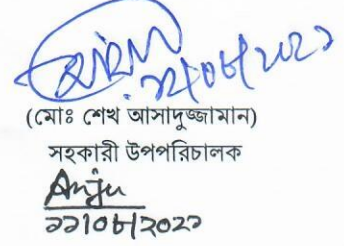 ১২/০৮/২০২১
(মোঃ শেখ আসাদুজ্জামান)
সহকারী উপপরিচালক
Anju
১১/০৮/২০২১